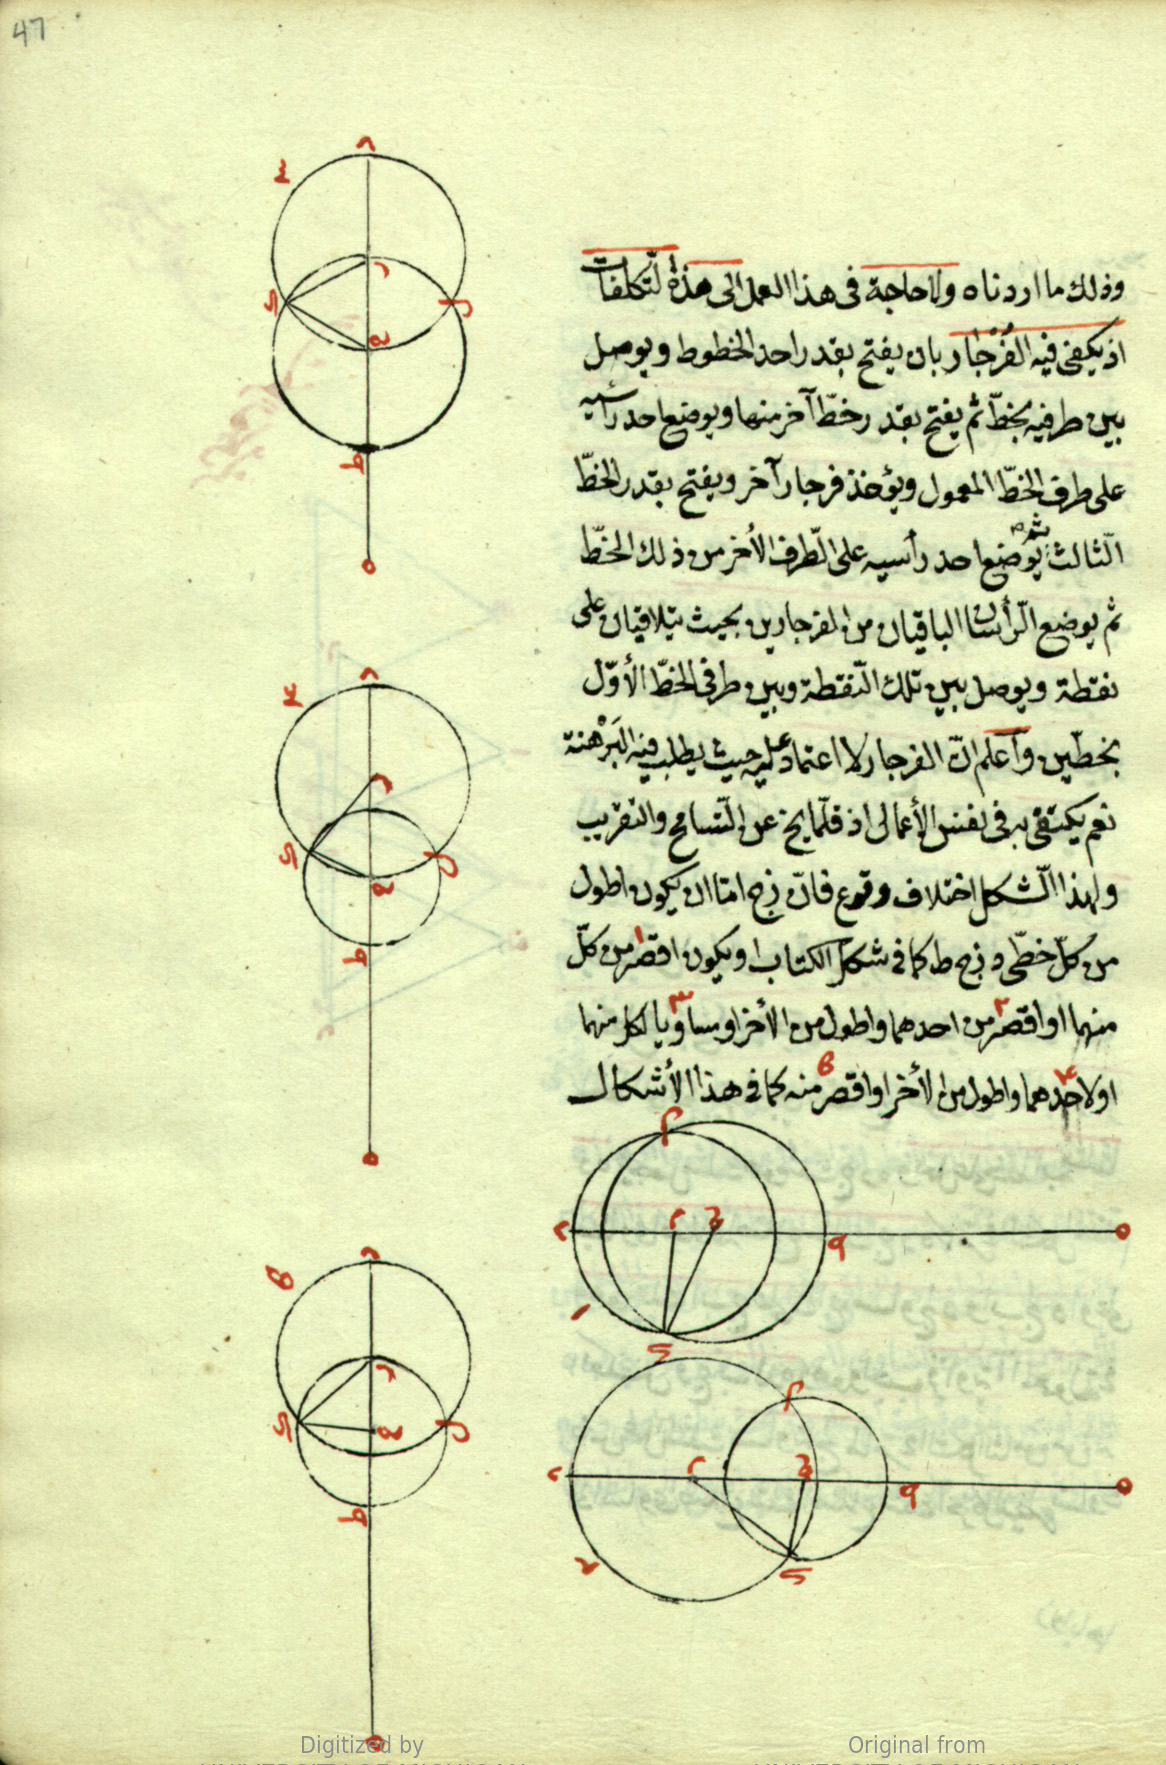 47
وذلك ما اردناه ولا حاجة فى هذا العمل الى هذه التّكلفات
اذ يكفى فيه الفُرْجار بان يفتح بقدر احد الخطوط ويوصل
بين طرفيه بخطّ ثم يفتح بقدر خطّ آخر منها ويوضع احد رأسيه
على طرف الخطّ المعمول ويؤخذ فرجار آخر ويفتح بقدر الخطّ
الثّالث ثم يوضع احد رأسيه على الطّرف الأخر من ذلك الخطّ
ثم يوضع الرّأسان الباقيان من الفرجارين بحيث يتلاقيان على
نقطة ويوصل بين تلك النّقطة وبين طرفى الخطّ الأوّل
بخطّين وآعلم انّ الفرجار لا اعتماد عليه حيث يطلب فيه البَرْهنة
نعم يكتفى به فى نفس الأعمال اذ قلّما يخ عن التّسامح والتقريب
ولهذا الشّكل اختلاف وقوع فانّ زح امّا ان يكون اطول
من كلّ خطّى د زح ط كما فى شكل الكتاب او يكون اقصر من كلّ
منهما او اقصر من احدهما واطول من الأخر او مساويا لكل منهما
او لاحدهما واطول من الأخر او اقصر منه كما فى هذا الأشكال
Digitized by
Original from